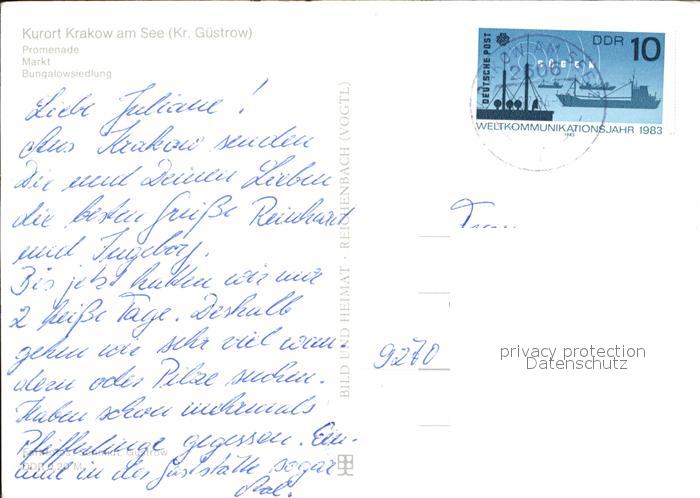 Kurort Krakow am See (Kr. Güstrow)
Promenade
Markt
Bungalowsiedlung
Liebe Juliane!
Aus Krakow senden
Dir und Deinen Lieben
die besten Grüße Reinhard
und Ingeborg.
Bis jetzt hatten wir nur
2 heiße Tage. Deshalb
gehen wir sehr viel wan-
dern oder Pilze suchen.
Haben schon mehrmals
Pfifferlinge gegessen. Ein-
mal in der Gaststätte sogar
Güstrow
BILD UND HEIMAT · REICHENBACH (VOGTL)
DEUTSCHE POST
DDR 10
WELTKOMMUNIKATIONSJAHR 1983
AM SEE
2606
Frau
9270
privacy protection
Datenschutz